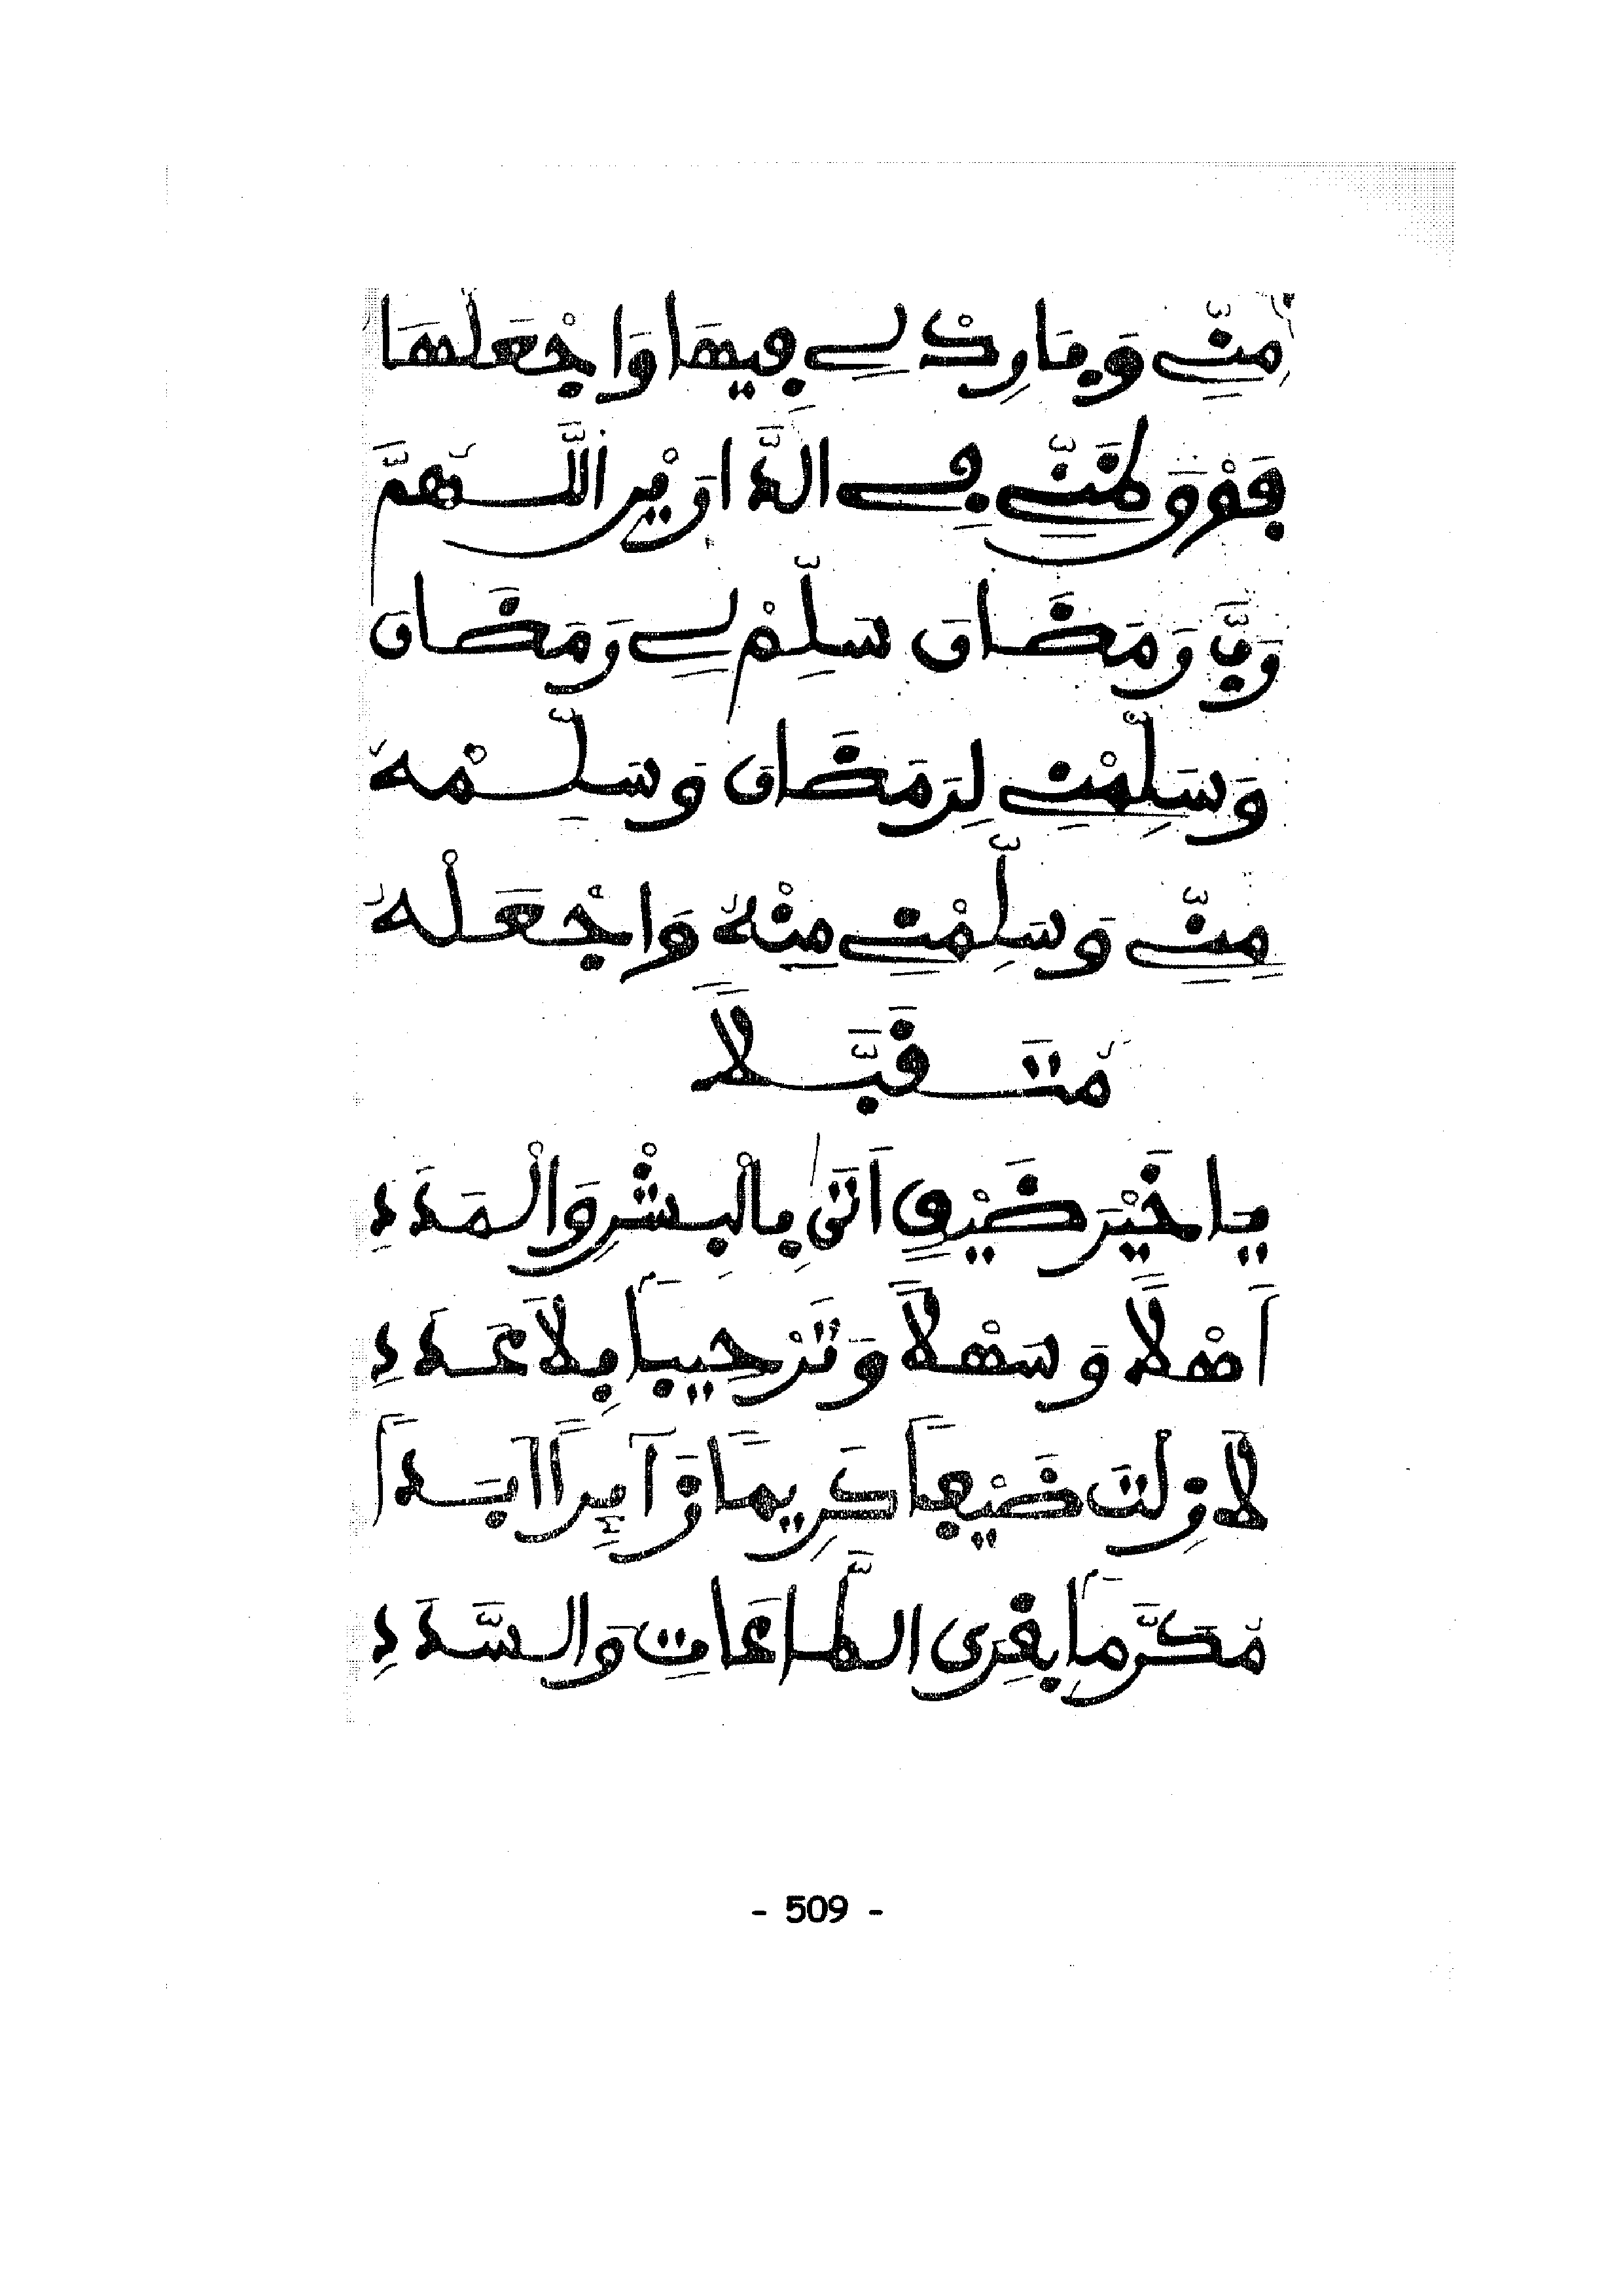 مِنِّے وَبَارِكْ لِے فِيهَا وَاجْعَلْهَا
فَوْقَ ظَنِّے فِے الدَّارَيْنِ اللَّهُمَّ
رَبَّ رَمَضَانَ سَلِّمْ لِے رَمَضَانَ
وَسَلِّمْنِے لِرَمَضَانَ وَسَلِّمْهُ
مِنِّے وَسَلِّمْنِے مِنْهُ وَاجْعَلْهُ
مُتَقَبَّلاً
يَا خَيْرَ ضَيْفٍ أَتَى بِالْبِشْرِ وَالْمَدَدِ
أَهْلاً وَسَهْلاً وَتَرْحِيباً بِلاَ عَدَدِ
لاَ زِلْتَ ضَيْفاً كَرِيماً زَائِراً أَبَداً
مُكَرَّماً بِقِرَى الطَّاعَاتِ وَالسَّدَدِ
- 509 -